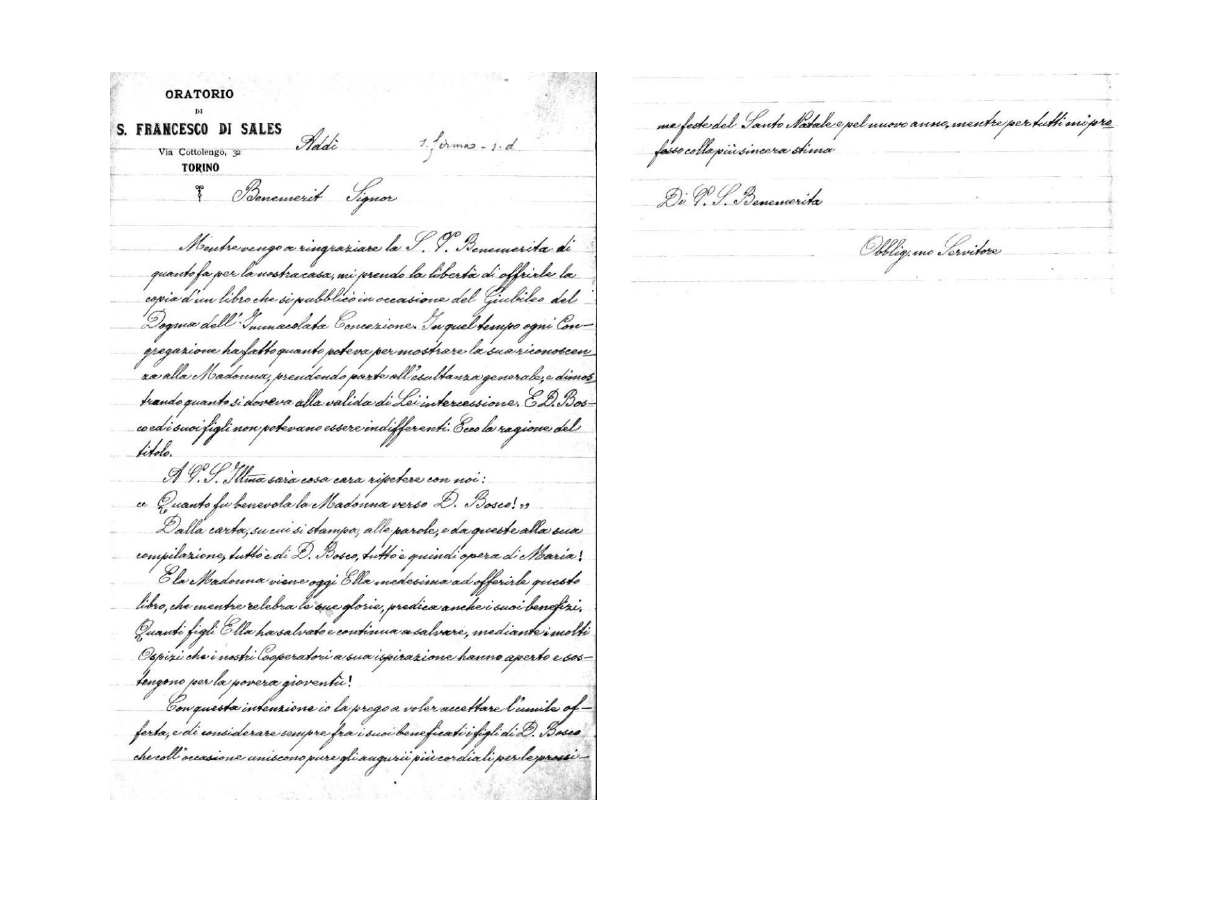 ORATORIO
DI
S. FRANCESCO DI SALES
Via Cottolengo, 32
TORINO
Addì
s. firma - s. d
Benemerit Signor
Mentre vengo a ringraziare la S. V. Benemerita di
quanto fa per la nostra casa, mi prendo la libertà di offrirle la
copia d'un libro che si pubblicò in occasione del Giubileo del
Dogma dell'Immacolata Concezione. In quel tempo ogni Con-
gregazione ha fatto quanto poteva per mostrare la sua riconoscen
za alla Madonna, prendendo parte all'esultanza generale, e dimos
trando quanto si doveva alla valida di Lei intercessione. E D. Bos-
co ed i suoi figli non potevano essere indifferenti. Ecco la ragione del
titolo.
A V. S. Ill.ma sarà cosa cara ripetere con noi:
« Quanto fu benevola la Madonna verso D. Bosco! »
Dalla carta, su cui si stampa, alle parole, e da queste alla sua
compilazione, tutto è di D. Bosco, tutto è quindi opera di Maria!
E la Madonna viene oggi Ella medesima ad offerirle questo
libro, che mentre celebra le sue glorie, predica anche i suoi benefizi.
Quanti figli Ella ha salvato e continua a salvare, mediante i molti
Ospizi che i nostri Cooperatori a sua ispirazione hanno aperto e sos-
tengono per la povera gioventù!
Con questa intenzione io la prego a voler accettare l'umile of-
ferta, e di considerare sempre fra i suoi beneficati i figli di D. Bosco
che coll'occasione uniscono pure gli augurii più cordiali per le prossi-
me feste del Santo Natale e pel nuovo anno, mentre per tutti mi pro
fesso colla più sincera stima
Di V. S. Benemerita
Obblig.mo Servitore